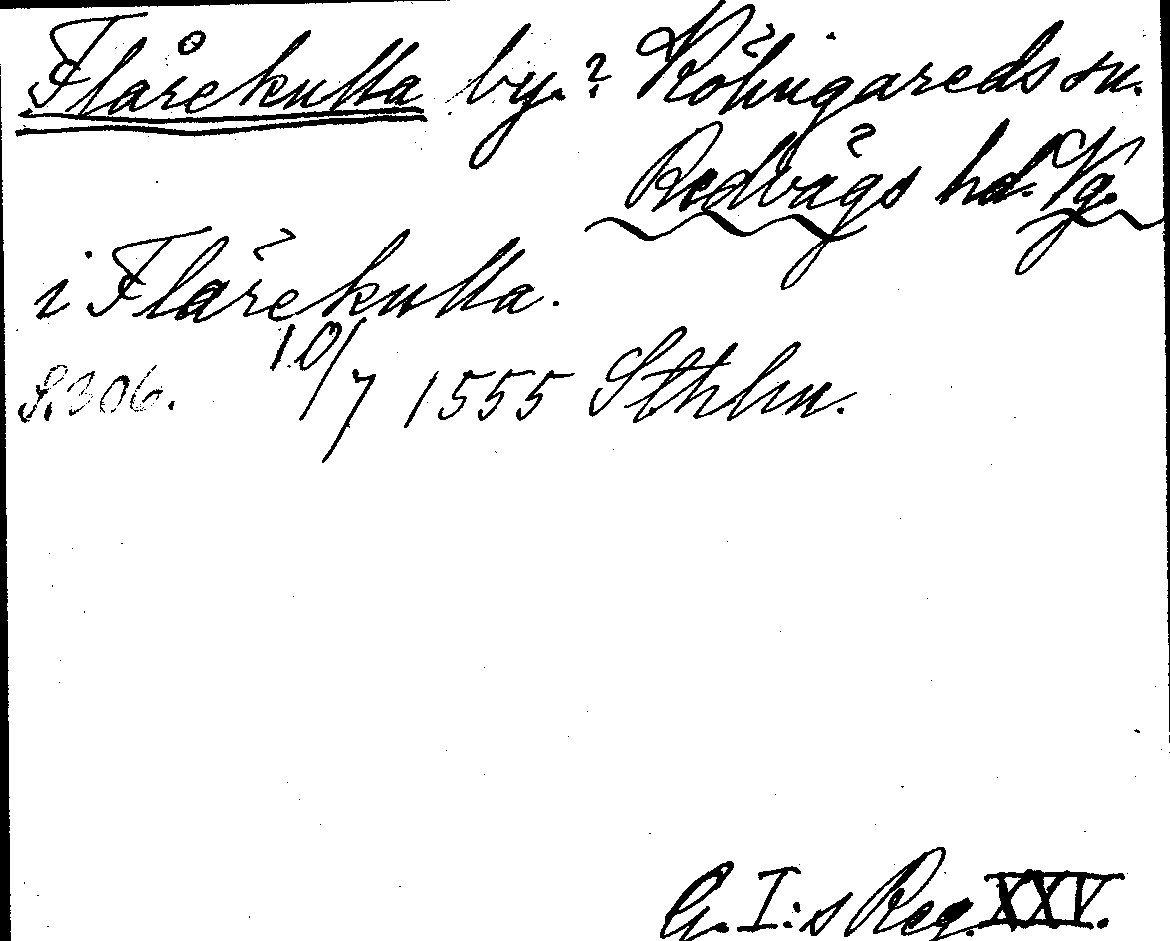 Flårekulla by.? Kölingareds sn.
Redvägs hd. Vg.
i Flärekulla.
S. 306. 10/7 1555 Sthlm.
G. I:s Reg. XXV.